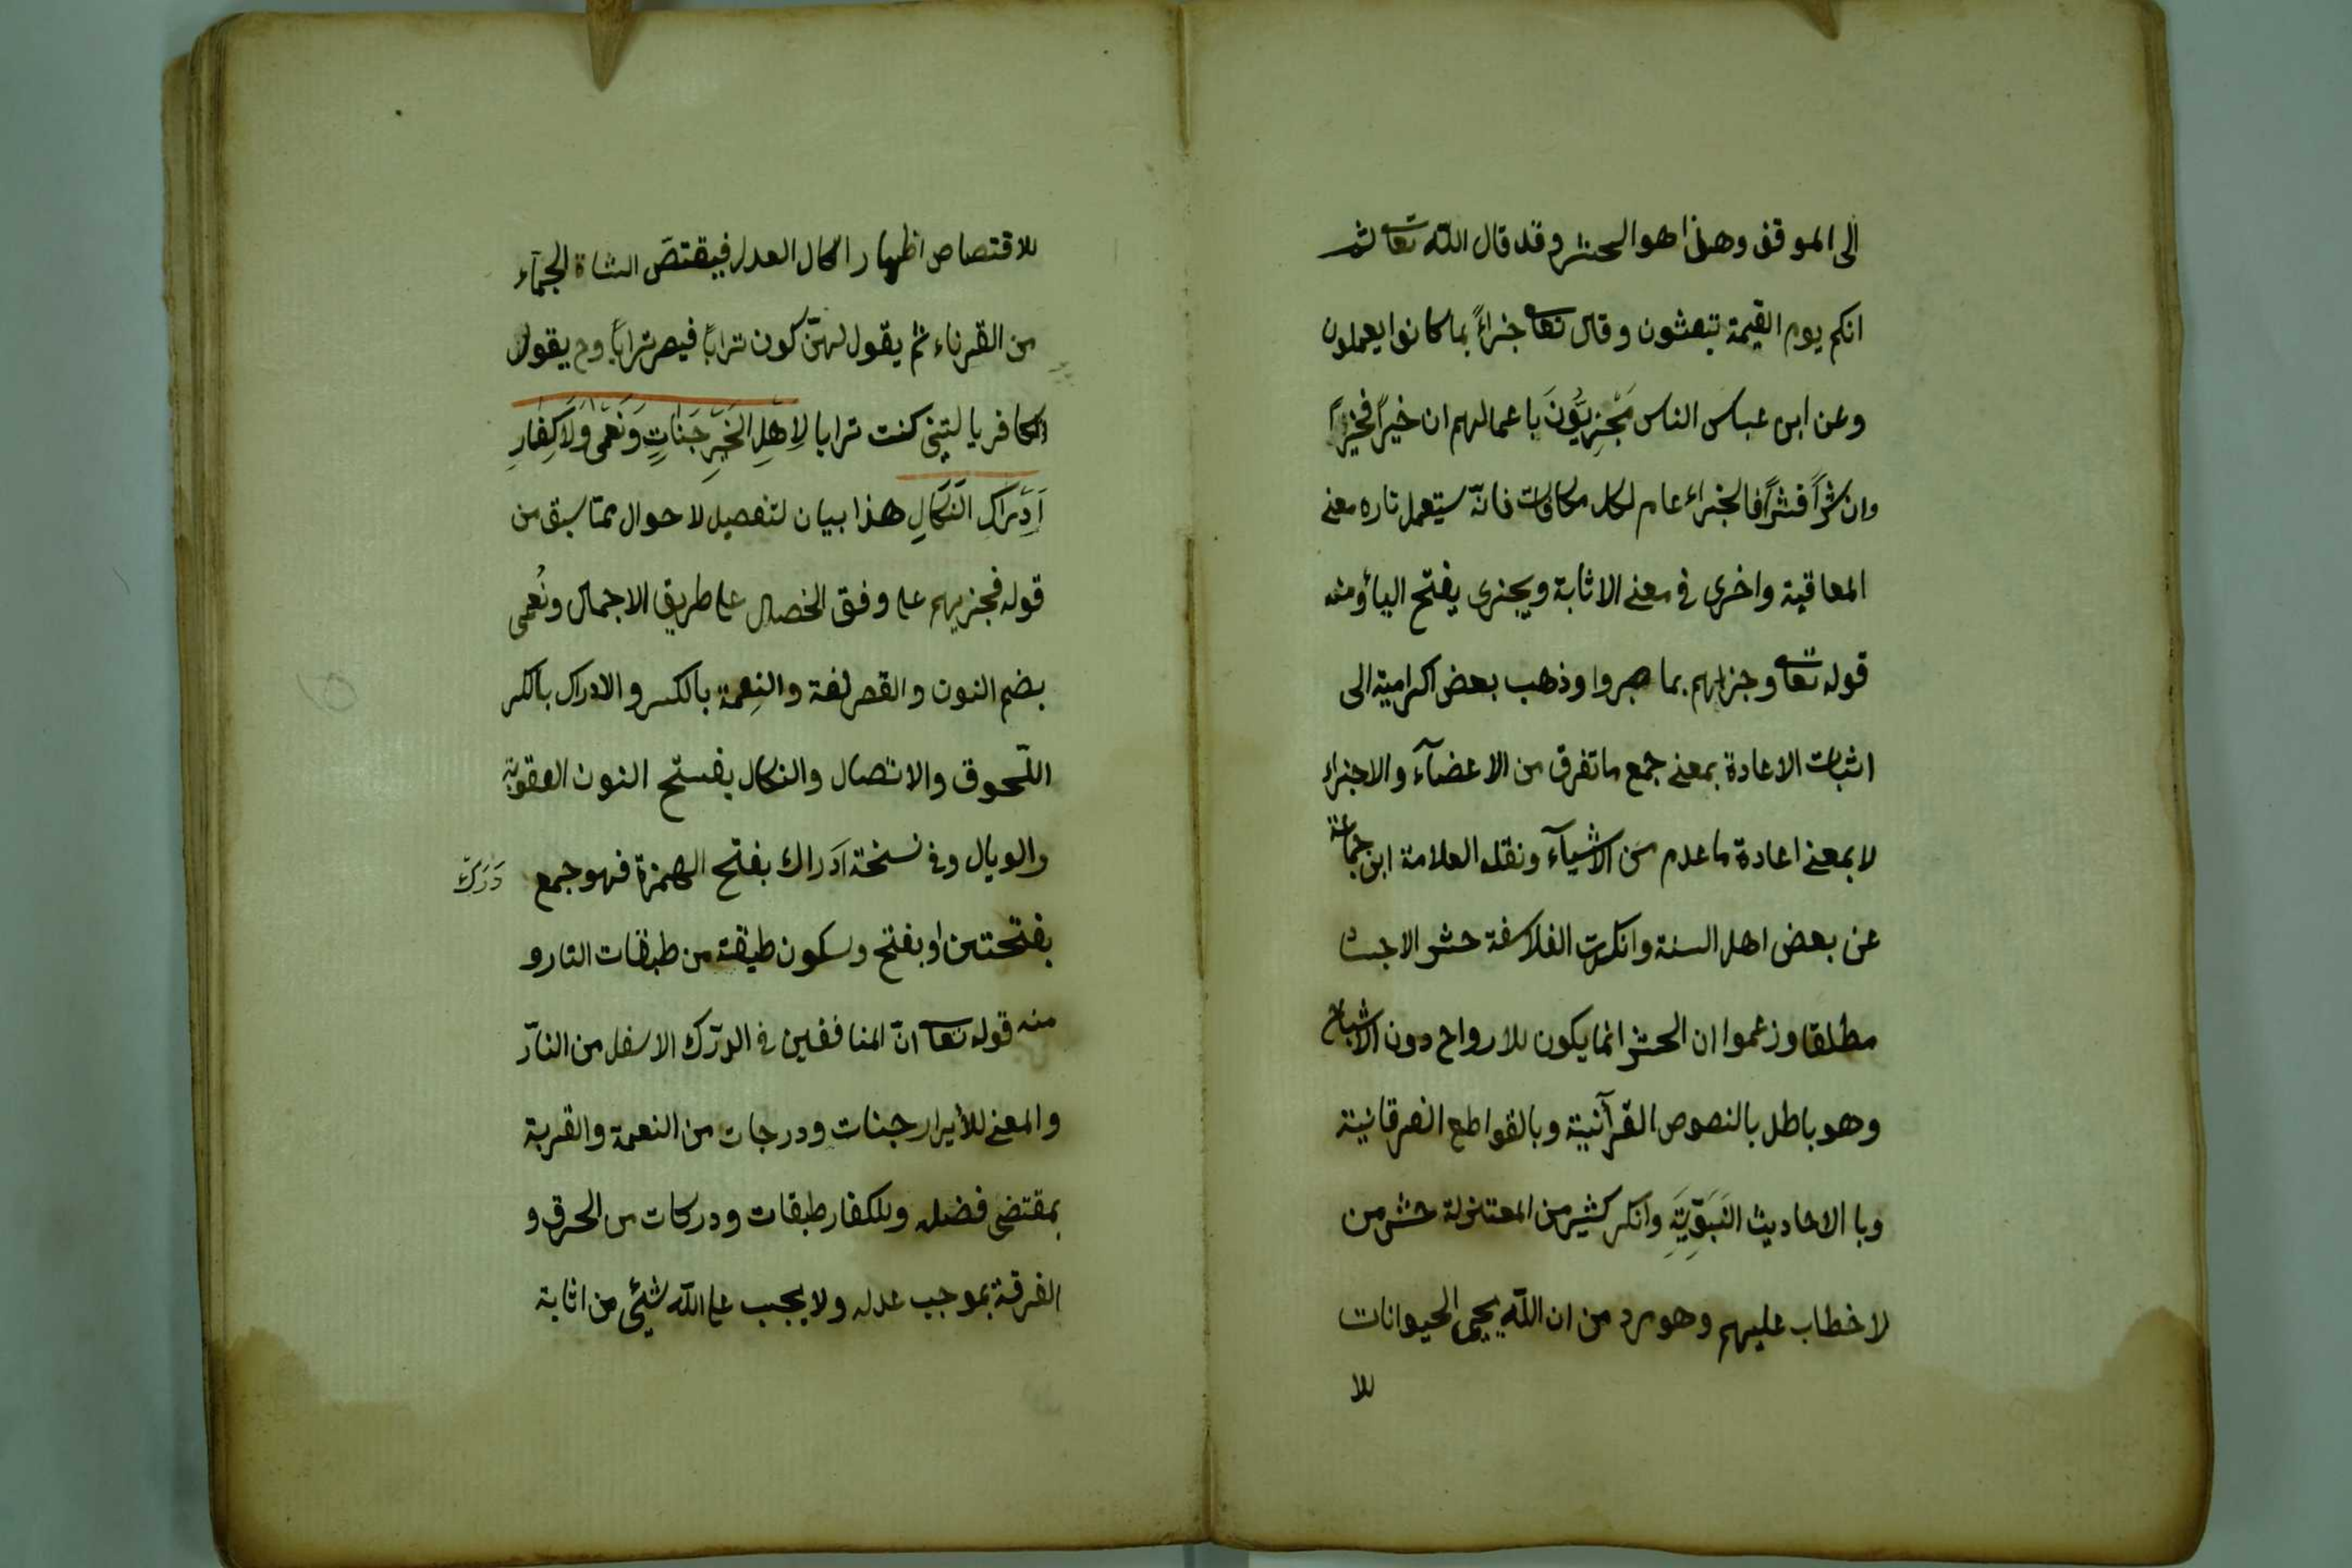 الى الموقف وهذا هو الحشر وقد قال الله تعا ثم
انكم يوم القيمة تبعثون وقال تعا جزاءً بما كانوا يعملون
وعن ابن عباس الناس مَجْزِيُّونَ باعمالهم ان خيراً فخيراً
وان شراً فشراً فالجزاء عام لكل مكافات فانه يستعمل تاره معنى
المعاقبة واخرى فى معنى الاثابة ويجزى بفتح اليأ ومنه
قوله تعا وجزاهم بما صبروا وذهب بعض اكرامية الى
اثبات الاعادة بمعنى جمع ما تفرق من الاعضآء والاجزاء
لا بمعنى اعادة ما عدم من الاشيآء ونقله العلامة ابن جماعة
عن بعض اهل السنة وانكرت الفلاسفة حشر الاجسا
مطلقا وزعموا ان الحشر انما يكون للارواح دون الاشباح
وهو باطل بالنصوص القرآنية وبالقواطع الفرقانية
وبا الاحاديث النَبَوِيَّةِ وانكر كثير من المعتزلة حشر من
لا خطاب عليهم وهو مرد من ان الله يحيى الحيوانات
للا
للاقتصاص اظهار الكمال العدل فيقتصّ الشاة الجمآء
من القرناء ثم يقول لهنّ كون تراباً فيصر تراباً وح يقول
الكافر يا ليتنى كنت ترابا لِاَهْلِ الخَيْرِ جَنَاتٍ وَنُعْمَى وَلَاكِفارِ
اَدِّرَاكِ النَّكَالِ هذا بيان لتفصيل لاحوال ممّا سبق من
قوله فيجزيهم على وفق الخصال على طريق الاجمال ونُعمى
بضم النون والقصر لغة والنِعمة بالكسر والادراك بالكر
اللّحوق والاتصال والنكال بفتح النون العقوبة
والوبال وفى نسخة اَدَراك بفتح الهمزة فهو جمع دَرَك
بفتحتين او بفتح وسكون طبقة من طبقات النار و
منه قوله تعا انّ المنافقين فى الدرّك الاسفل من النارّ
والمعنى للأبرار جنات ودرجات من النعمة والقربة
بمقتضى فضله وللكفار طبقات ودركات من الحرق و
الفرقة بموجب عدله ولا يجب على الله شئ من اثابة